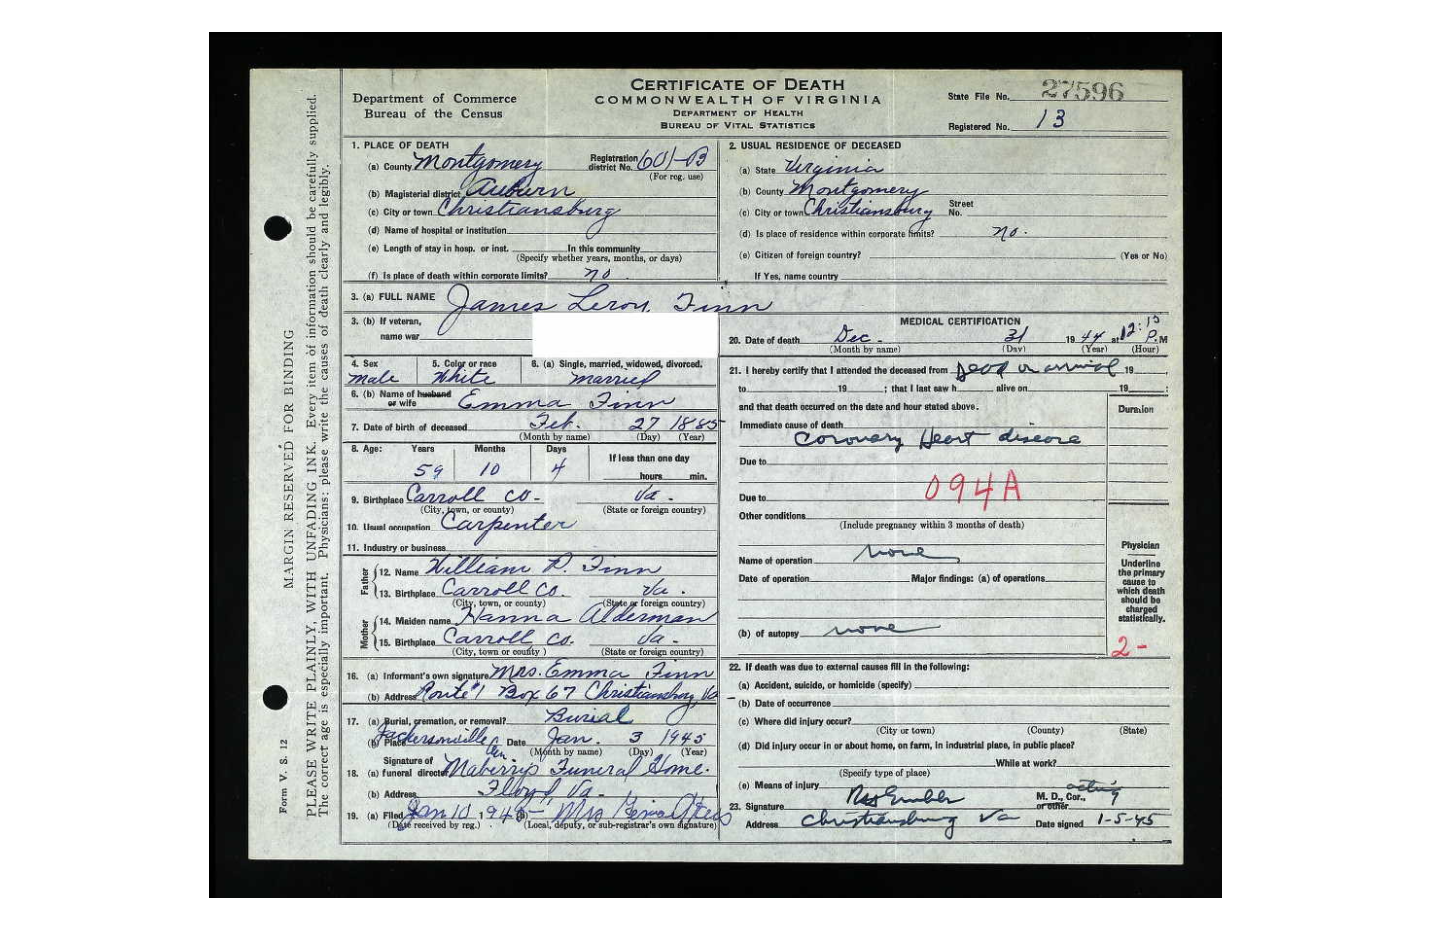 CERTIFICATE OF DEATH
COMMONWEALTH OF VIRGINIA
DEPARTMENT OF HEALTH
BUREAU OF VITAL STATISTICS
Department of Commerce
Bureau of the Census
State File No. 27596
Registered No. 13
MARGIN RESERVED FOR BINDING
PLEASE WRITE PLAINLY, WITH UNFADING INK. Every item of information should be carefully supplied.
The correct age is especially important. Physicians: please write the causes of death clearly and legibly.
Form V. S. 12
1. PLACE OF DEATH
(a) County Montgomery Registration district No. 601-B
(For reg. use)
(b) Magisterial district Auburn
(c) City or town Christiansburg
(d) Name of hospital or institution
(e) Length of stay in hosp. or inst. In this community
(Specify whether years, months, or days)
(f) Is place of death within corporate limits? no
2. USUAL RESIDENCE OF DECEASED
(a) State Virginia
(b) County Montgomery
(c) City or town Christiansburg Street No.
(d) Is place of residence within corporate limits? no.
(e) Citizen of foreign country? (Yes or No)
If Yes, name country
3. (a) FULL NAME James Leroy Finn
3. (b) If veteran,
name war
4. Sex male
5. Color or race White
6. (a) Single, married, widowed, divorced. married
6. (b) Name of husband or wife Emma Finn
7. Date of birth of deceased Feb. 27 1885
(Month by name) (Day) (Year)
8. Age: Years Months Days If less than one day
59 10 4 hours min.
9. Birthplace Carroll Co. Va.
(City, town, or county) (State or foreign country)
10. Usual occupation Carpenter
11. Industry or business
Father
12. Name William P. Finn
13. Birthplace Carroll Co. Va.
(City, town, or county) (State or foreign country)
Mother
14. Maiden name Hanna Alderman
15. Birthplace Carroll Co. Va.
(City, town, or county ) (State or foreign country)
16. (a) Informant's own signature Mrs. Emma Finn
(b) Address Route #1 Box 67 Christiansburg, Va
17. (a) Burial, cremation, or removal? Burial
(b) Place Date Jan. 3 1945
(Month by name) (Day) (Year)
18. Signature of
(a) funeral director Maberrys Funeral Home.
(b) Address Floyd Va.
19. (a) Filed Jan 10 1945 (b) Mrs
(Date received by reg.) (Local, deputy, or sub-registrar's own signature)
MEDICAL CERTIFICATION
20. Date of death Dec. 31 1944 at 12:15 P.M
(Month by name) (Day) (Year) (Hour)
21. I hereby certify that I attended the deceased from Dead on arrival 19
to 19 ; that I last saw h alive on 19 ;
and that death occurred on the date and hour stated above.
Duration
Immediate cause of death
Coronary Heart disease
Due to
094A
Due to
Other conditions
(Include pregnancy within 3 months of death)
Name of operation none
Date of operation Major findings: (a) of operations
(b) of autopsy none
Physician
Underline
the primary
cause to
which death
should be
charged
statistically.
2-
22. If death was due to external causes fill in the following:
(a) Accident, suicide, or homicide (specify)
(b) Date of occurrence
(c) Where did injury occur?
(City or town) (County) (State)
(d) Did injury occur in or about home, on farm, in industrial place, in public place?
While at work?
(Specify type of place)
(e) Means of injury acting
23. Signature M. D., Cor., or other
Address Christiansburg Va Date signed 1-5-45